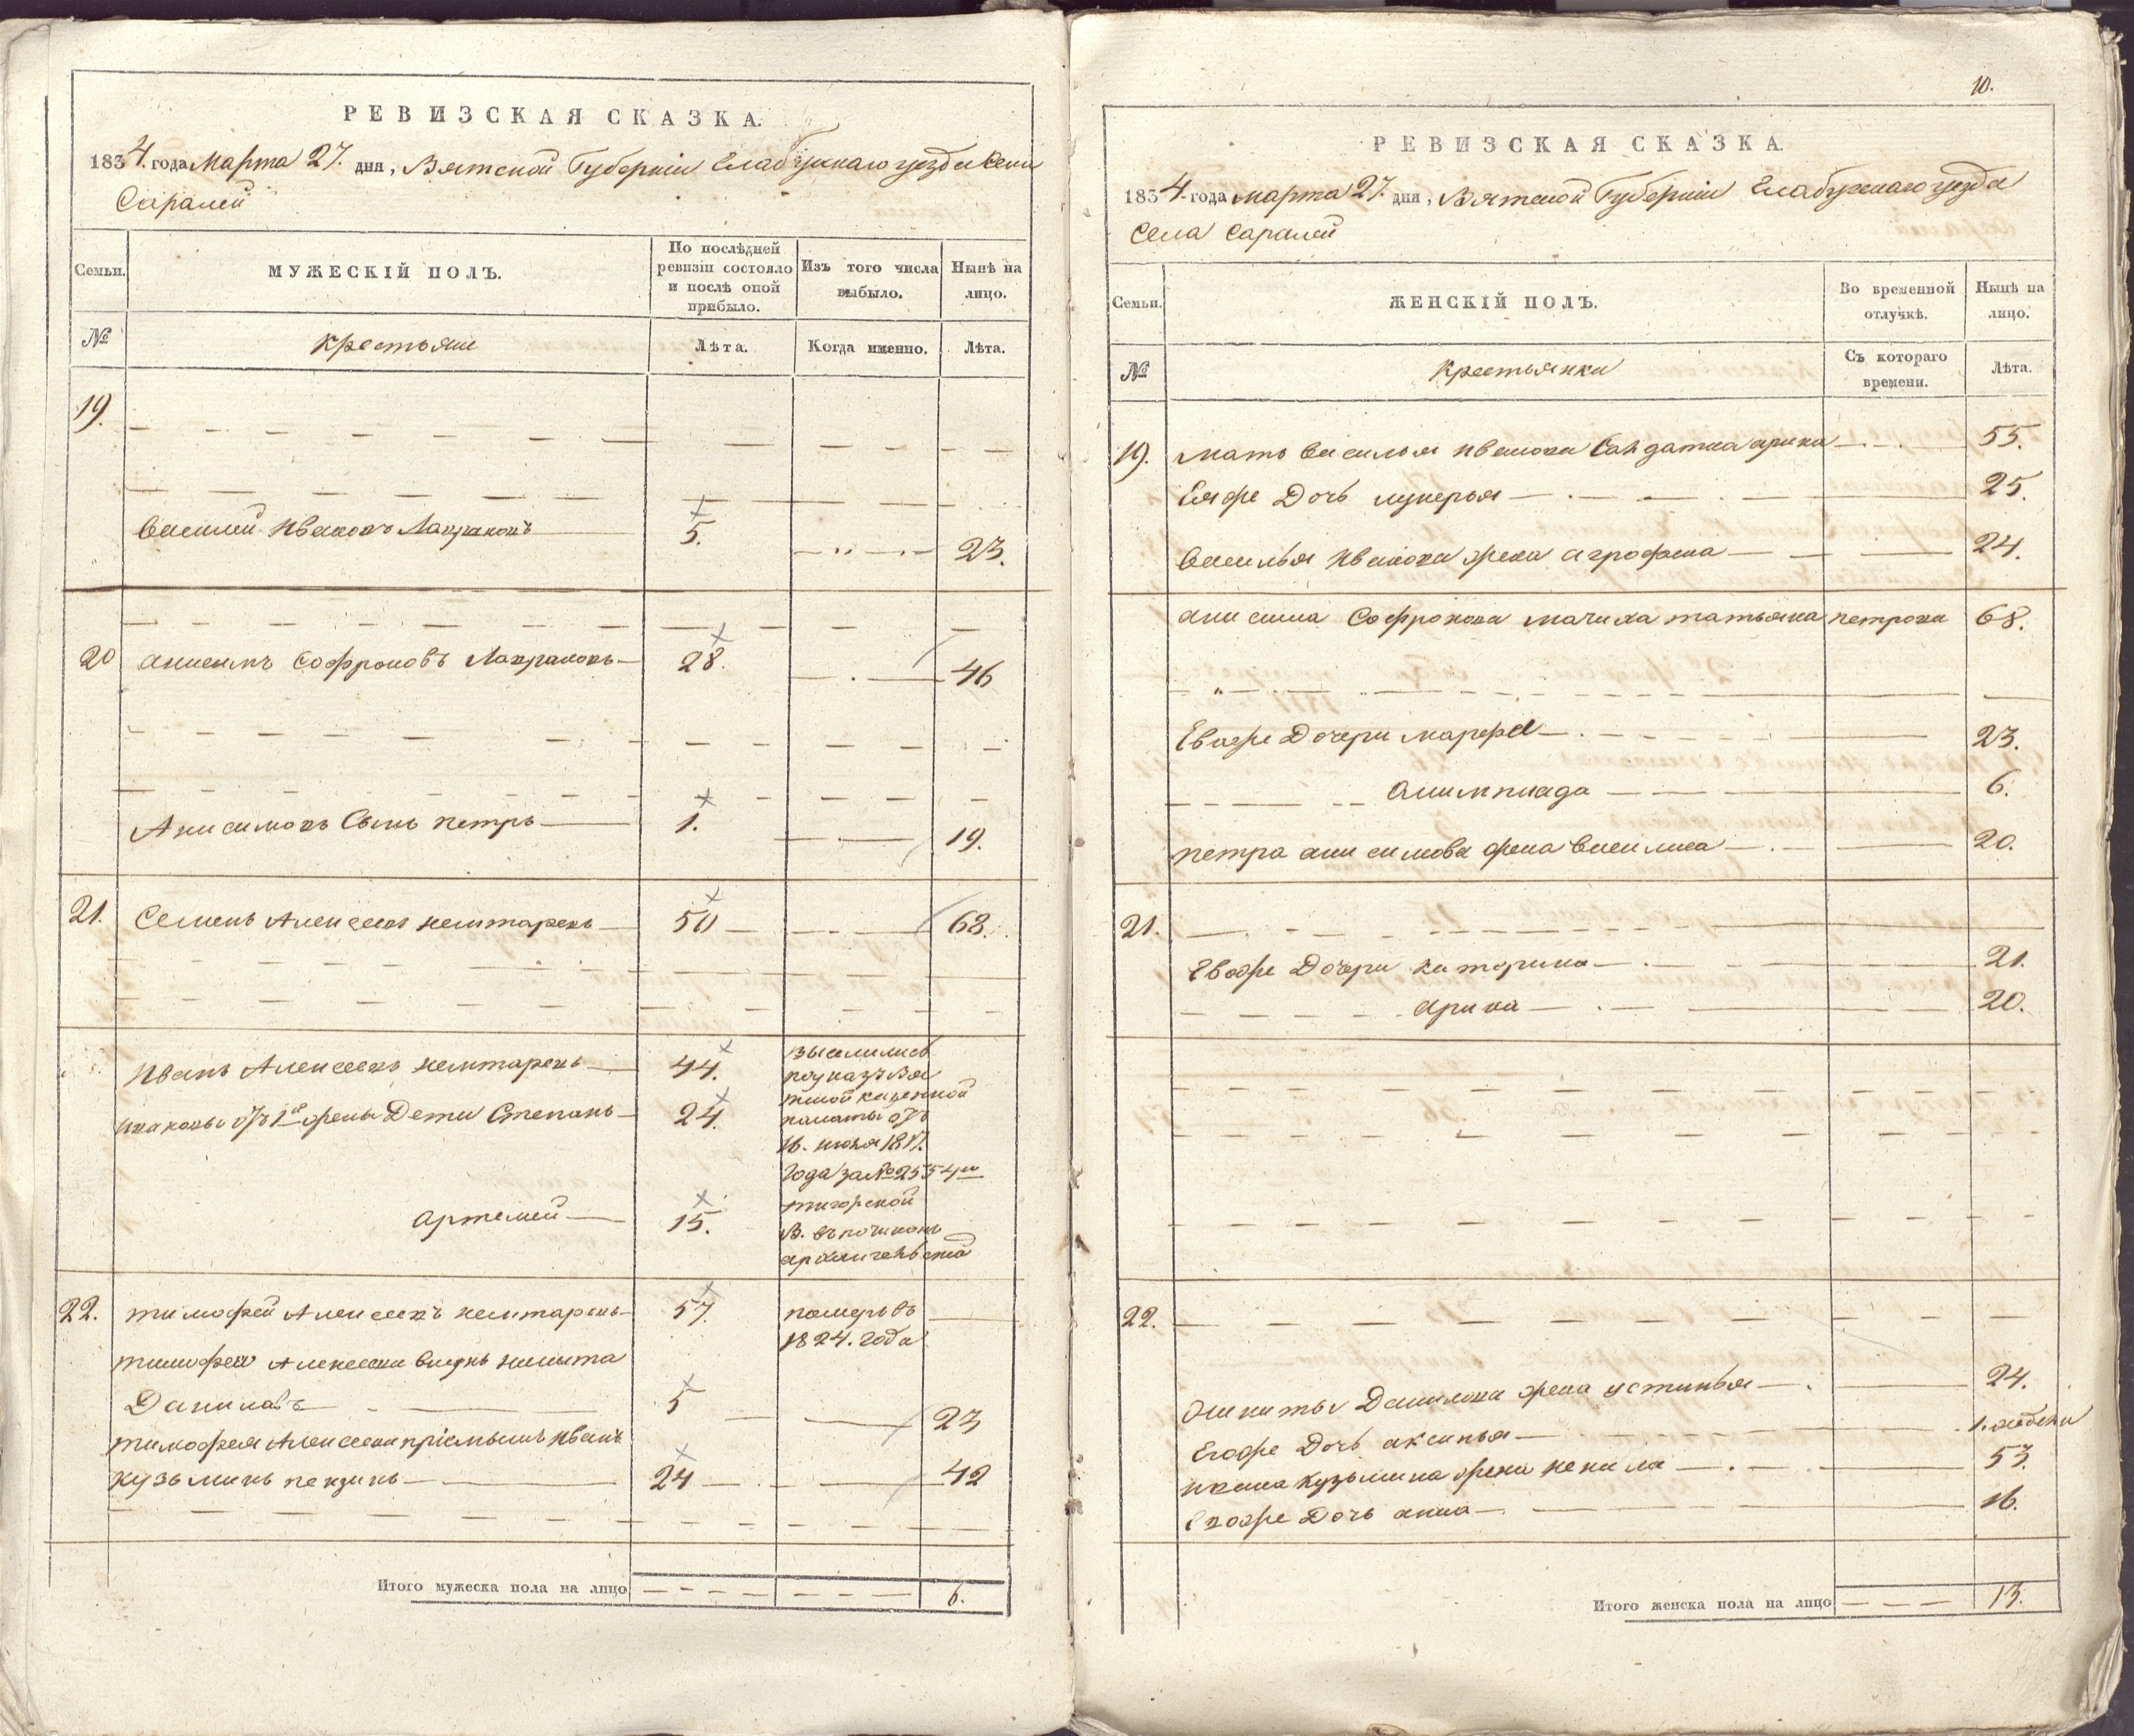 РЕВИЗСКАЯ СКАЗКА.
1834. года Марта 27. дня, Вятской Губернiи Елабужнаго уезда села
Саралей
Семьи.
МУЖЕСКIЙ ПОЛЪ.
По послѣдней ревизiи состояло и послѣ оной прибыло.
Изъ того числа выбыло.
Нынѣ на лицо.
№
крестьяне
Лѣта.
Когда именно.
Лѣта.
19.
Василей Ивановъ 5. 23.
20 анисимъ Софроновъ 28. 46
Анисимовъ Сынъ петръ 1. 19.
21. Семенъ Алексеевъ 50 68.
Иванъ Алексеевъ 44.
выселились
по указу Вя
тской казенной
палаты отъ
16. июня 1817.
года за № 2554м
В. въ починокъ
ивановы отъ 1й жены Дети Степанъ 24.
артемей 15.
22. тимофей Алексеевъ 57. померъ въ
1824. года
тимофея Алексеева внукъ никита
Даниловъ 5 23
тимофея Алексеева прiемышъ Иванъ
кузьминъ пензинъ 24 42
Итого мужеска пола на лицо 6.
10.
РЕВИЗСКАЯ СКАЗКА.
1834. года марта 27. дня, Вятской Губернiи Елабужнаго уезда
Села Саралей
Семьи.
ЖЕНСКIЙ ПОЛЪ.
Во временной отлучкѣ.
Нынѣ на лицо.
№
крестьянки
Съ котораго времени.
Лѣта.
19. мать Василья Иванова Салдатка арина 55.
Еяже Дочь лукерья 25.
Василья Иванова жена агрофена 24.
анисима Софронова мачиха татьяна петрова 68.
Евоже Дочери марфа 23.
алимпиада 6.
петра анисимова жена василиса 20.
21.
Евоже Дочери катерина 21.
арина 20.
22.
никиты Данилова жена устинья 24.
Егоже Дочь аксинья 1. недели
ивана кузьмина жена ненила 53.
Евоже Дочь анна 16.
Итого женска пола на лицо 13.